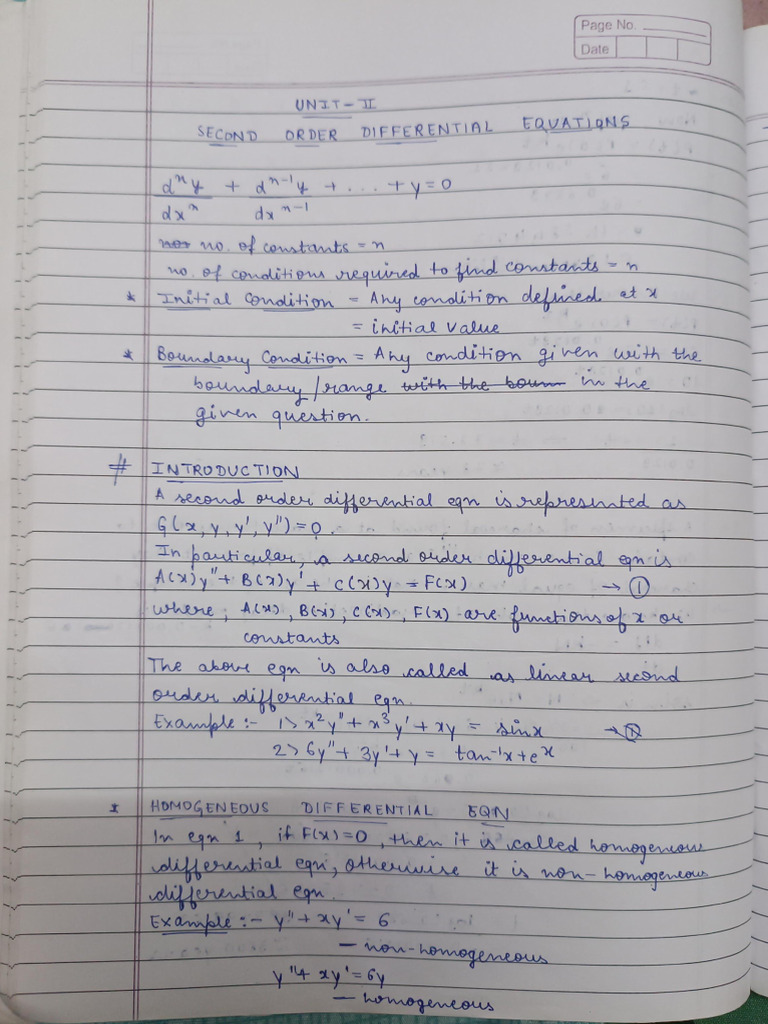 Page No.
Date
UNIT-II
SECOND ORDER DIFFERENTIAL EQUATIONS
dⁿy/dxⁿ + dⁿ⁻¹y/dxⁿ⁻¹ + ... + y = 0
no. of constants = n
no. of conditions required to find constants = n
* Initial Condition = Any condition defined at x
= initial value
* Boundary Condition = Any condition given with the
boundary/range with the boun in the
given question.
# INTRODUCTION
A second order differential eqn is represented as
G(x, y, y', y'') = 0.
In particular, a second order differential eqn is
A(x)y'' + B(x)y' + C(x)y = F(x) → ①
where, A(x), B(x), C(x), F(x) are functions of x or
constants
The above eqn is also called as linear second
order differential eqn.
Example :- 1> x²y'' + x³y' + xy = sinx →
2> 6y'' + 3y' + y = tan⁻¹x + eˣ
* HOMOGENEOUS DIFFERENTIAL EQN
In eqn 1, if F(x) = 0, then it is called homogeneous
differential eqn, otherwise it is non-homogeneous
differential eqn.
Example :- y'' + xy' = 6
— non-homogeneous
y'' + xy' = 6y
— homogeneous